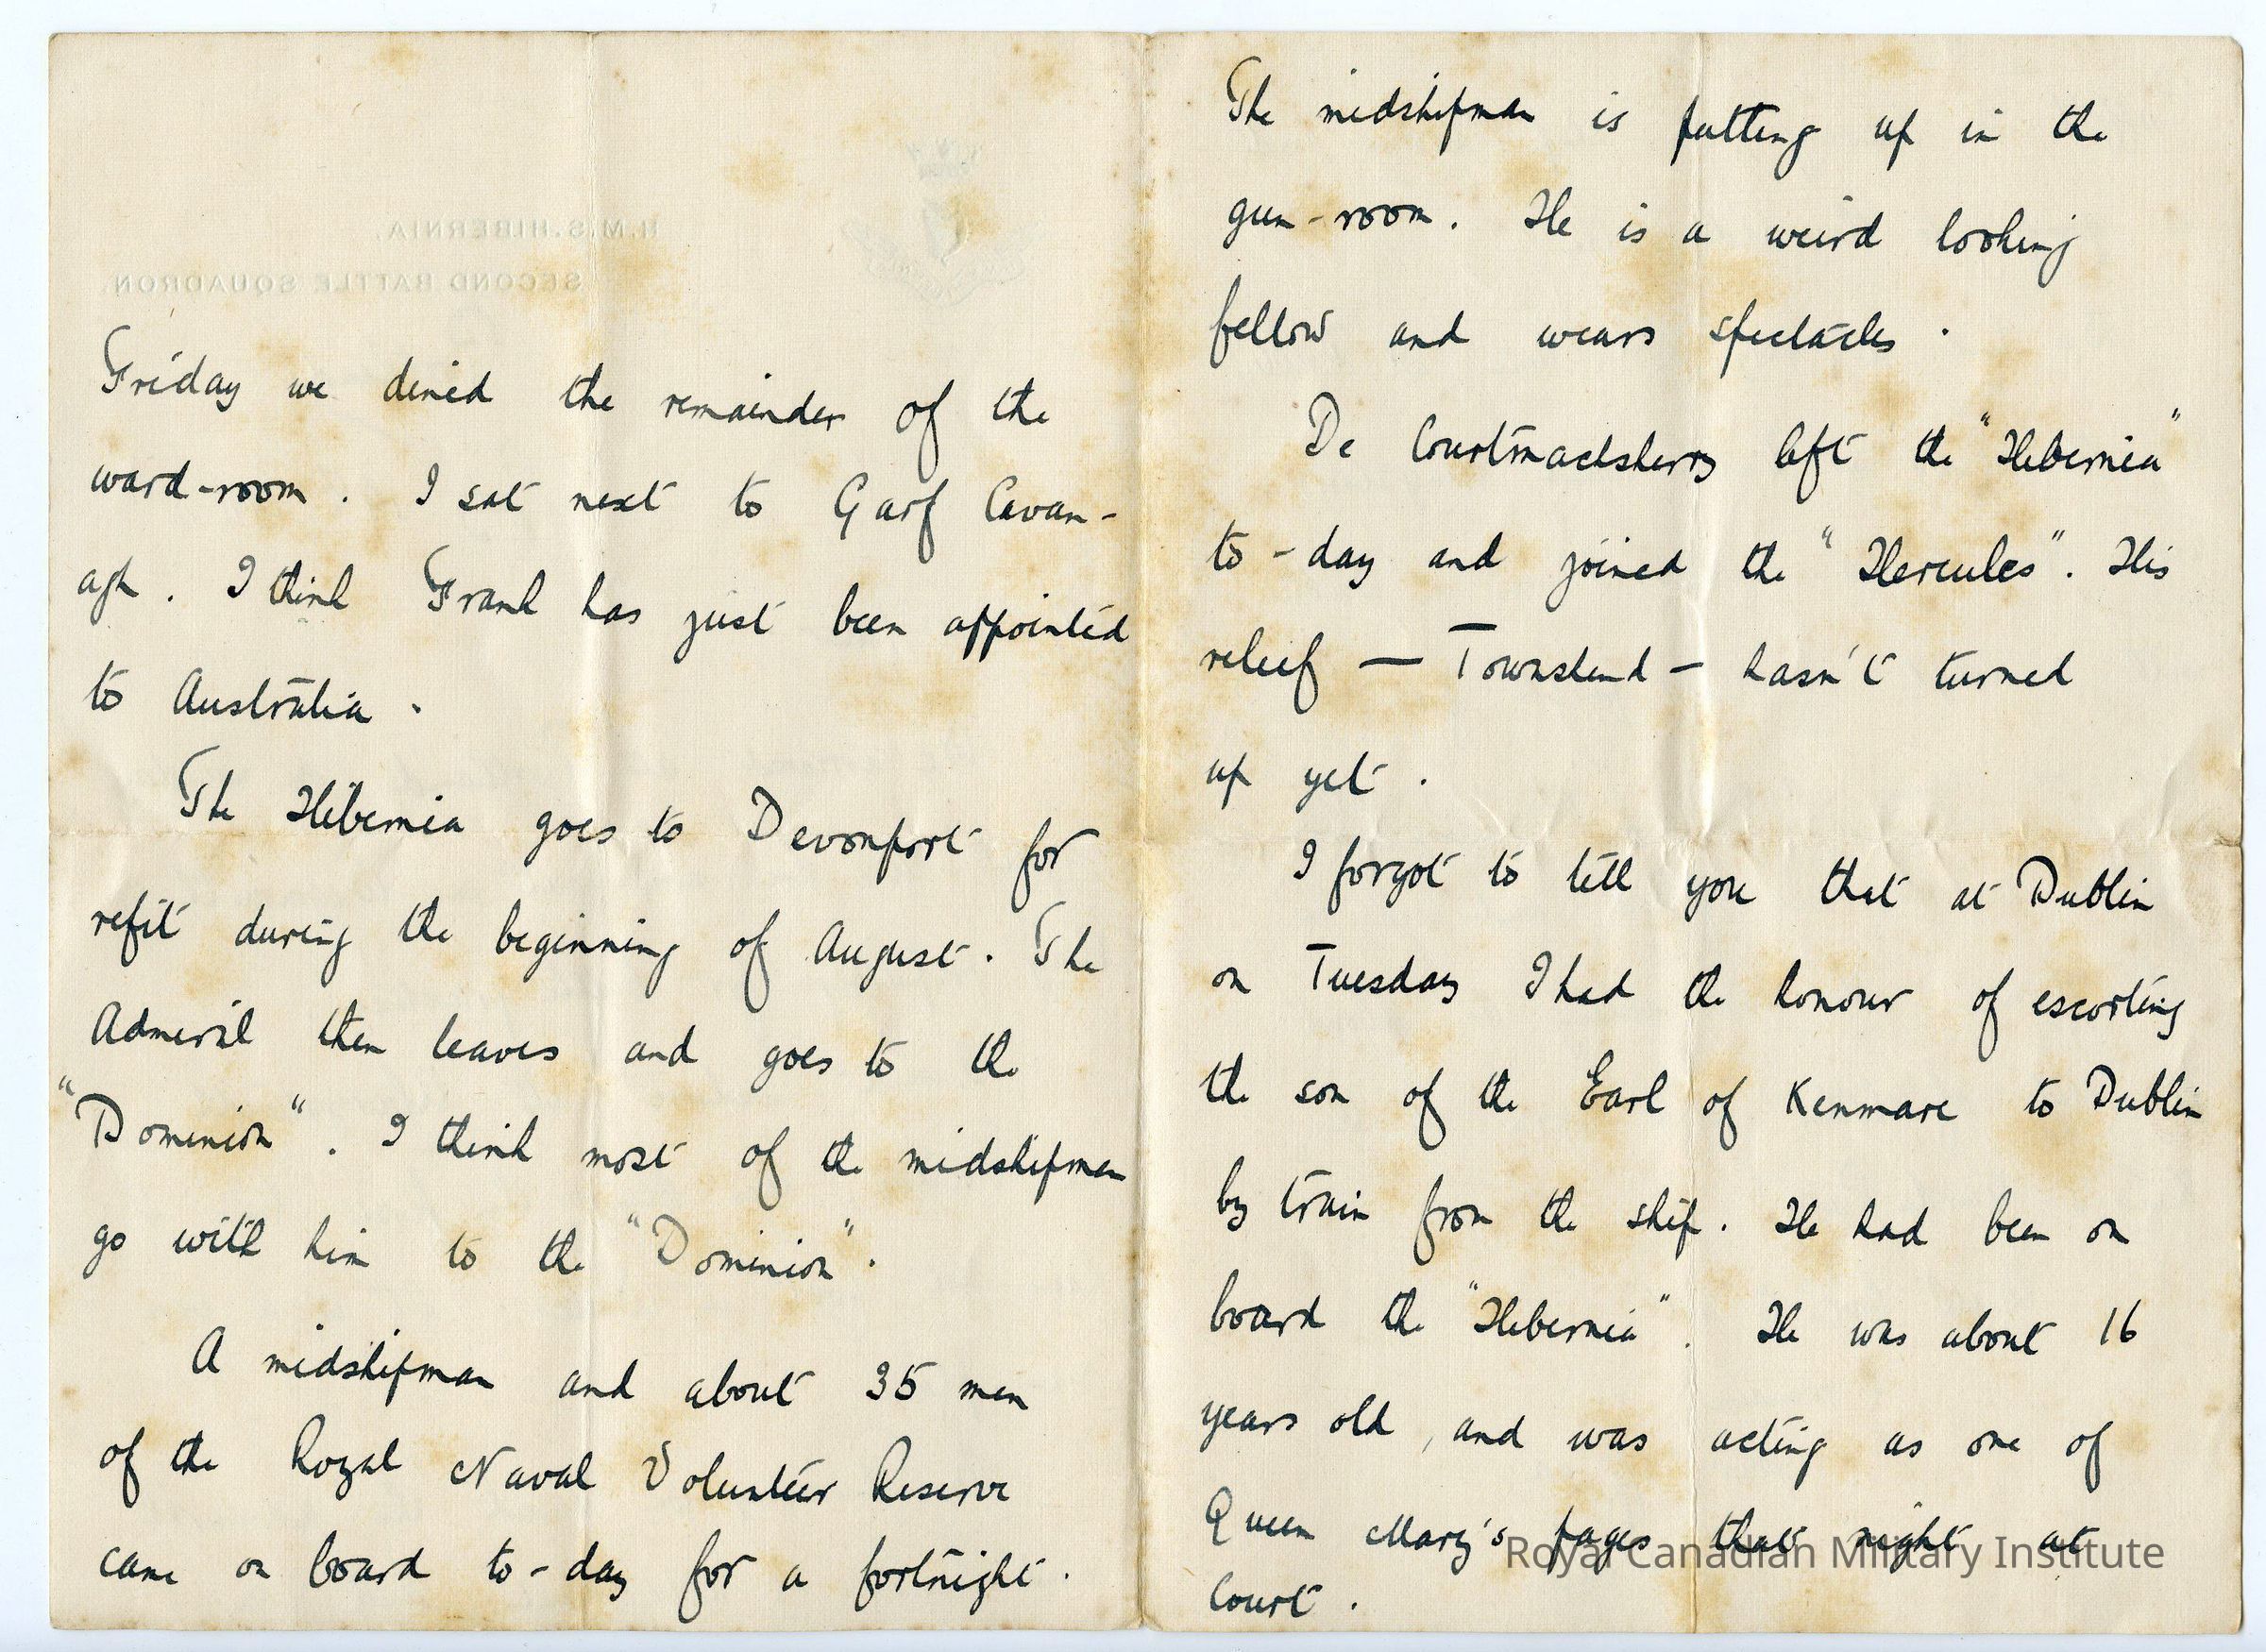 H.M.S. HIBERNIA,
SECOND BATTLE SQUADRON.
Friday we dined the remainder of the
ward-room. I sat next to Garf Cavan-
agh. I think Frank has just been appointed
to Australia.
The Hibernia goes to Devonport for
refit during the beginning of August. The
Admiral then leaves and goes to the
"Dominion". I think most of the midshipmen
go with him to the "Dominion".
A midshipman and about 35 men
of the Royal Naval Volunteer Reserve
came on board to-day for a fortnight.
The midshipman is putting up in the
gun-room. He is a weird looking
fellow and wears spectacles.
De Courtmacksherry left the "Hibernia"
to-day and joined the "Hercules". His
relief — Townshend — hasn't turned
up yet.
I forgot to tell you that at Dublin
on Tuesday I had the honour of escorting
the son of the Earl of Kenmare to Dublin
by train from the ship. He had been on
board the "Hibernia". He was about 16
years old, and was acting as one of
Queen Mary's pages that night at
Court.
Royal Canadian Military Institute